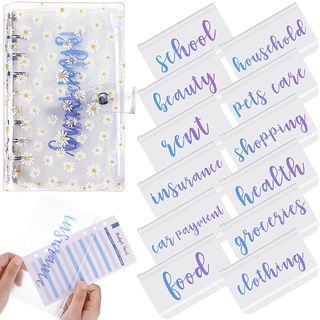 school
household
beauty
pets care
rent
shopping
insurance
health
car payment
groceries
food
clothing
insurance
Budget Sheet